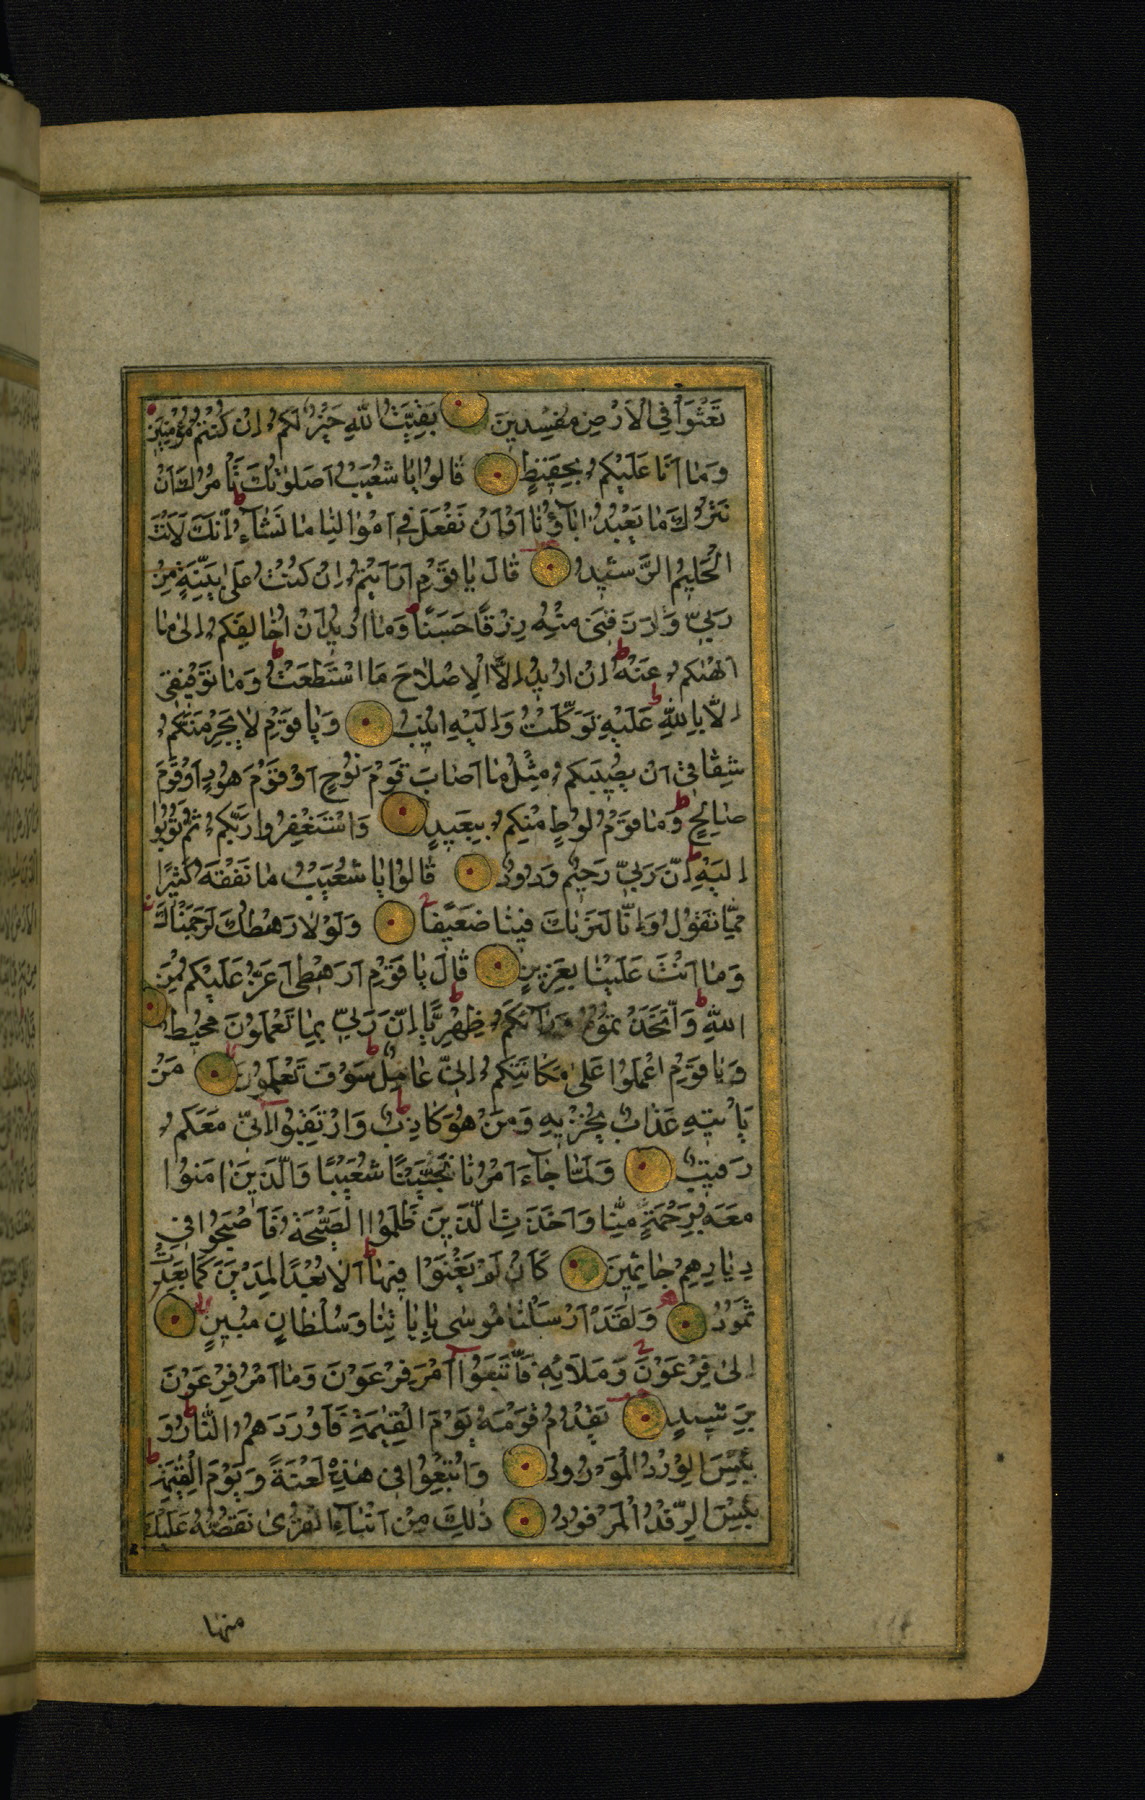 تَعْثَوْا فِي الْاَرْضِ مُفْسِدِينَ بَقِيَّتُ اللّٰهِ خَيْرٌ لَكُمْ اِنْ كُنْتُمْ مُؤْمِنِينَ
وَمَا اَنَا عَلَيْكُمْ بِحَفِيظٍ قَالُوا يَا شُعَيْبُ اَصَلٰوتُكَ تَأْمُرُكَ اَنْ
نَتْرُكَ مَا يَعْبُدُ اٰبَآؤُنَا اَوْ اَنْ نَفْعَلَ فِي اَمْوَالِنَا مَا نَشَآءُ اِنَّكَ لَاَنْتَ
الْحَلِيمُ الرَّشِيدُ قَالَ يَا قَوْمِ اَرَاَيْتُمْ اِنْ كُنْتُ عَلٰى بَيِّنَةٍ مِنْ
رَبِّي وَرَزَقَنِي مِنْهُ رِزْقًا حَسَنًا وَمَا اُرِيدُ اَنْ اُخَالِفَكُمْ اِلٰى مَا
اَنْهٰكُمْ عَنْهُ اِنْ اُرِيدُ اِلَّا الْاِصْلَاحَ مَا اسْتَطَعْتُ وَمَا تَوْفِيقِي
اِلَّا بِاللّٰهِ عَلَيْهِ تَوَكَّلْتُ وَاِلَيْهِ اُنِيبُ وَيَا قَوْمِ لَا يَجْرِمَنَّكُمْ
شِقَاقِي اَنْ يُصِيبَكُمْ مِثْلُ مَا اَصَابَ قَوْمَ نُوحٍ اَوْ قَوْمَ هُودٍ اَوْ قَوْمَ
صَالِحٍ وَمَا قَوْمُ لُوطٍ مِنْكُمْ بِبَعِيدٍ وَاسْتَغْفِرُوا رَبَّكُمْ ثُمَّ تُوبُوا
اِلَيْهِ اِنَّ رَبِّي رَحِيمٌ وَدُودٌ قَالُوا يَا شُعَيْبُ مَا نَفْقَهُ كَثِيرًا
مِمَّا تَقُولُ وَاِنَّا لَنَرٰيكَ فِينَا ضَعِيفًا وَلَوْلَا رَهْطُكَ لَرَجَمْنَاكَ
وَمَا اَنْتَ عَلَيْنَا بِعَزِيزٍ قَالَ يَا قَوْمِ اَرَهْطِي اَعَزُّ عَلَيْكُمْ مِنَ
اللّٰهِ وَاتَّخَذْتُمُوهُ وَرَآءَكُمْ ظِهْرِيًّا اِنَّ رَبِّي بِمَا تَعْمَلُونَ مُحِيطٌ
وَيَا قَوْمِ اعْمَلُوا عَلٰى مَكَانَتِكُمْ اِنِّي عَامِلٌ سَوْفَ تَعْلَمُونَ مَنْ
يَأْتِيهِ عَذَابٌ يُخْزِيهِ وَمَنْ هُوَ كَاذِبٌ وَارْتَقِبُوا اِنِّي مَعَكُمْ
رَقِيبٌ وَلَمَّا جَآءَ اَمْرُنَا نَجَّيْنَا شُعَيْبًا وَالَّذِينَ اٰمَنُوا
مَعَهُ بِرَحْمَةٍ مِنَّا وَاَخَذَتِ الَّذِينَ ظَلَمُوا الصَّيْحَةُ فَاَصْبَحُوا فِي
دِيَارِهِمْ جَاثِمِينَ كَاَنْ لَمْ يَغْنَوْا فِيهَا اَلَا بُعْدًا لِمَدْيَنَ كَمَا بَعِدَتْ
ثَمُودُ وَلَقَدْ اَرْسَلْنَا مُوسٰى بِاٰيَاتِنَا وَسُلْطَانٍ مُبِينٍ
اِلٰى فِرْعَوْنَ وَمَلَائِهِ فَاتَّبَعُوا اَمْرَ فِرْعَوْنَ وَمَا اَمْرُ فِرْعَوْنَ
بِرَشِيدٍ يَقْدُمُ قَوْمَهُ يَوْمَ الْقِيٰمَةِ فَاَوْرَدَهُمُ النَّارَ وَ
بِئْسَ الْوِرْدُ الْمَوْرُودُ وَاُتْبِعُوا فِي هٰذِهِ لَعْنَةً وَيَوْمَ الْقِيٰمَةِ
بِئْسَ الرِّفْدُ الْمَرْفُودُ ذٰلِكَ مِنْ اَنْبَآءِ الْقُرٰى نَقُصُّهُ عَلَيْكَ
منها